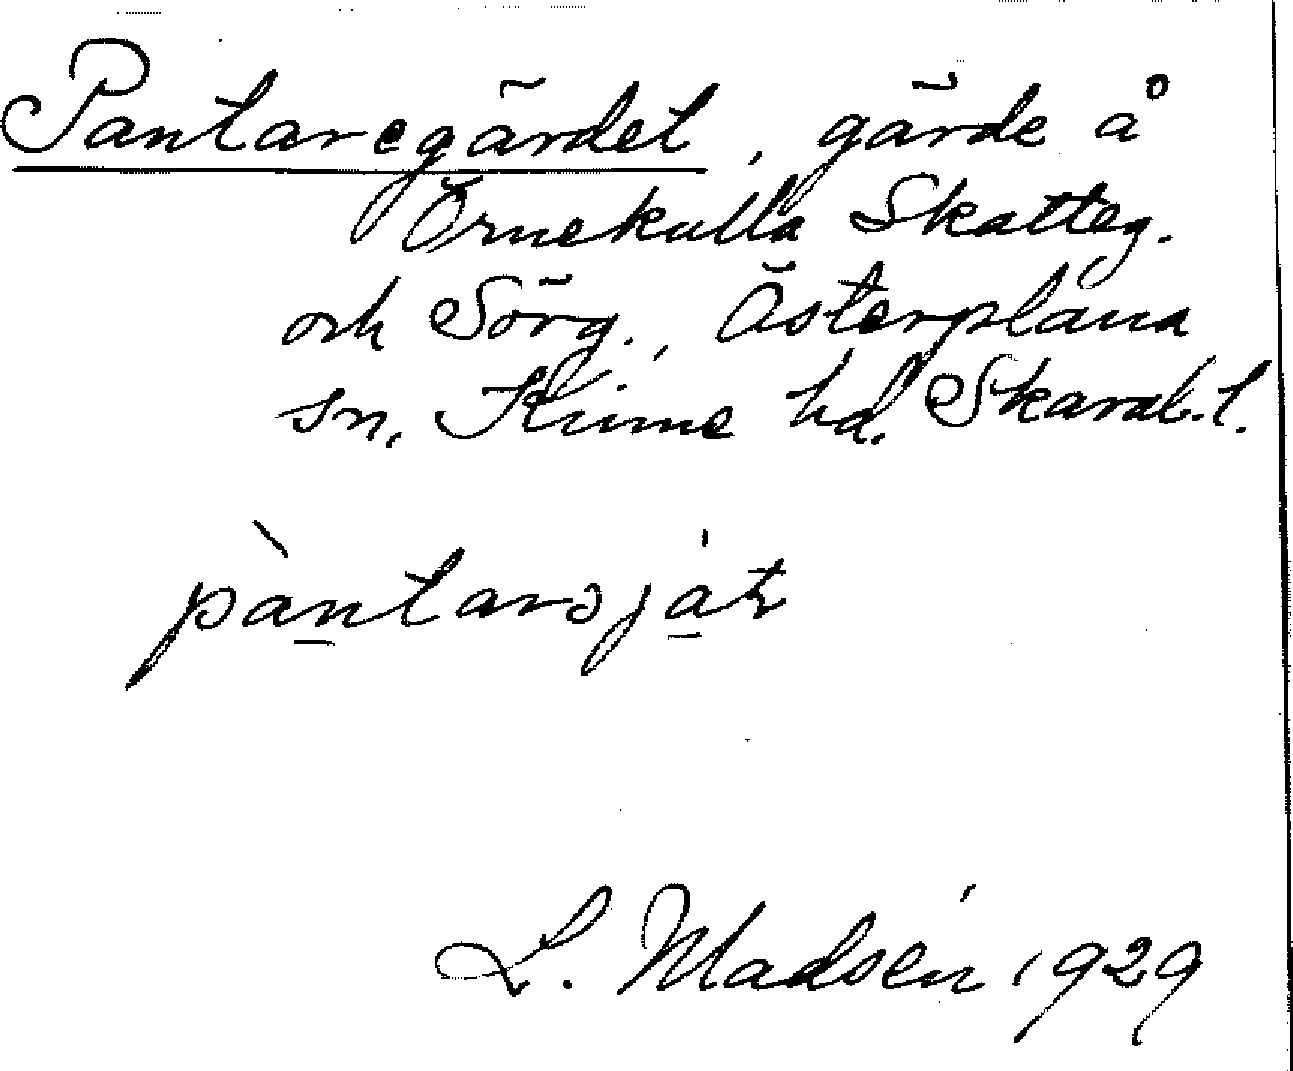 Pantaregärdet, gärde å
Örnekulla Skatteg.
och Sörg., Österplana
sn. Kinne hd. Skarab. l.
pàntarəját
L. Madsén 1929